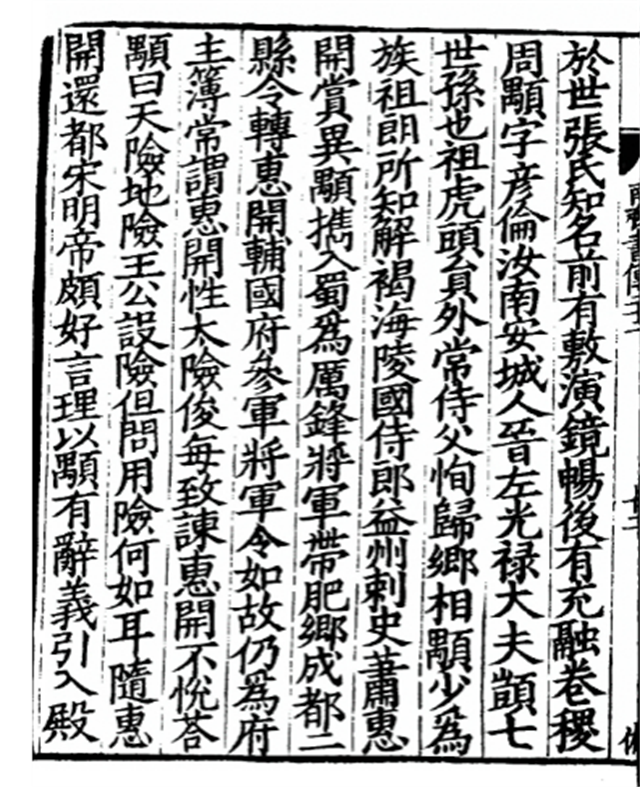 於世張氏知名前有敷演鏡暢後有充融卷稷
周顒字彥倫汝南安城人晉左光禄大夫顗七
世孫也祖虎頭員外常侍父恂歸鄉相顒少為
族祖朗所知解褐海陵國侍郎益州刺史蕭惠
開賞異顒攜入蜀為厲鋒將軍帶肥鄉成都二
縣令轉惠開輔國府參軍將軍令如故仍為府
主簿常謂惠開性太險俊每致諫惠開不悅荅
顒曰天險地險王公設險但問用險何如耳隨惠
開還都宋明帝頗好言理以顒有辭義引入殿